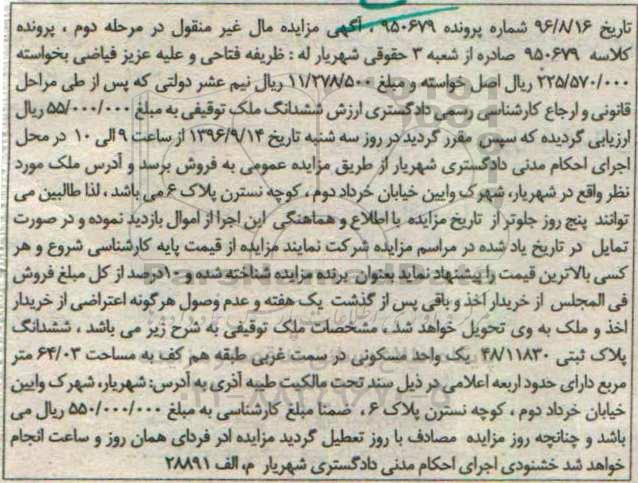 تاریخ ۹۶/۸/۱۶ شماره پرونده ۹۵۰۶۷۹ ، آگهی مزایده مال غیر منقول در مرحله دوم ، پرونده
کلاسه ۹۵۰۶۷۹ صادره از شعبه ۳ حقوقی شهریار له : ظریفه فتاحی و علیه عزیز فیاضی بخواسته
۲۲۵/۵۷۰/۰۰۰ ریال اصل خواسته و مبلغ ۱۱/۲۷۸/۵۰۰ ریال نیم عشر دولتی که پس از طی مراحل
قانونی و ارجاع کارشناسی رسمی دادگستری ارزش ششدانگ ملک توقیفی به مبلغ ۵۵/۰۰۰/۰۰۰ ریال
ارزیابی گردیده که سپس مقرر گردید در روز سه شنبه تاریخ ۱۳۹۶/۹/۱۴ از ساعت ۹ الی ۱۰ در محل
اجرای احکام مدنی دادگستری شهریار از طریق مزایده عمومی به فروش برسد و آدرس ملک مورد
نظر واقع در شهریار، شهرک وایین خیابان خرداد دوم ، کوچه نسترن پلاک ۶ می باشد ، لذا طالبین می
توانند پنج روز جلوتر از تاریخ مزایده با اطلاع و هماهنگی این اجرا از اموال بازدید نموده و در صورت
تمایل در تاریخ یاد شده در مراسم مزایده شرکت نمایند مزایده از قیمت پایه کارشناسی شروع و هر
کسی بالاترین قیمت را پیشنهاد نماید بعنوان برنده مزایده شناخته شده و ۱۰درصد از کل مبلغ فروش
فی المجلس از خریدار اخذ و باقی پس از گذشت یک هفته و عدم وصول هرگونه اعتراضی از خریدار
اخذ و ملک به وی تحویل خواهد شد ، مشخصات ملک توقیفی به شرح زیر می باشد ، ششدانگ
پلاک ثبتی ۴۸/۱۱۸۳۰ یک واحد مسکونی در سمت غربی طبقه هم کف به مساحت ۶۴/۰۳ متر
مربع دارای حدود اربعه اعلامی در ذیل سند تحت مالکیت طیبه آذری به آدرس: شهریار، شهرک وایین
خیابان خرداد دوم ، کوچه نسترن پلاک ۶ ، ضمنا مبلغ کارشناسی به مبلغ ۵۵۰/۰۰۰/۰۰۰ ریال می
باشد و چنانچه روز مزایده مصادف با روز تعطیل گردید مزایده ادر فردای همان روز و ساعت انجام
خواهد شد خشنودی اجرای احکام مدنی دادگستری شهریار م، الف ۲۸۸۹۱